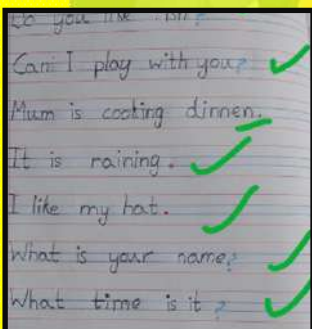 Do you like fish?
Can I play with you?
Mum is cooking dinnen.
It is raining.
I like my hat.
What is your name?
What time is it?